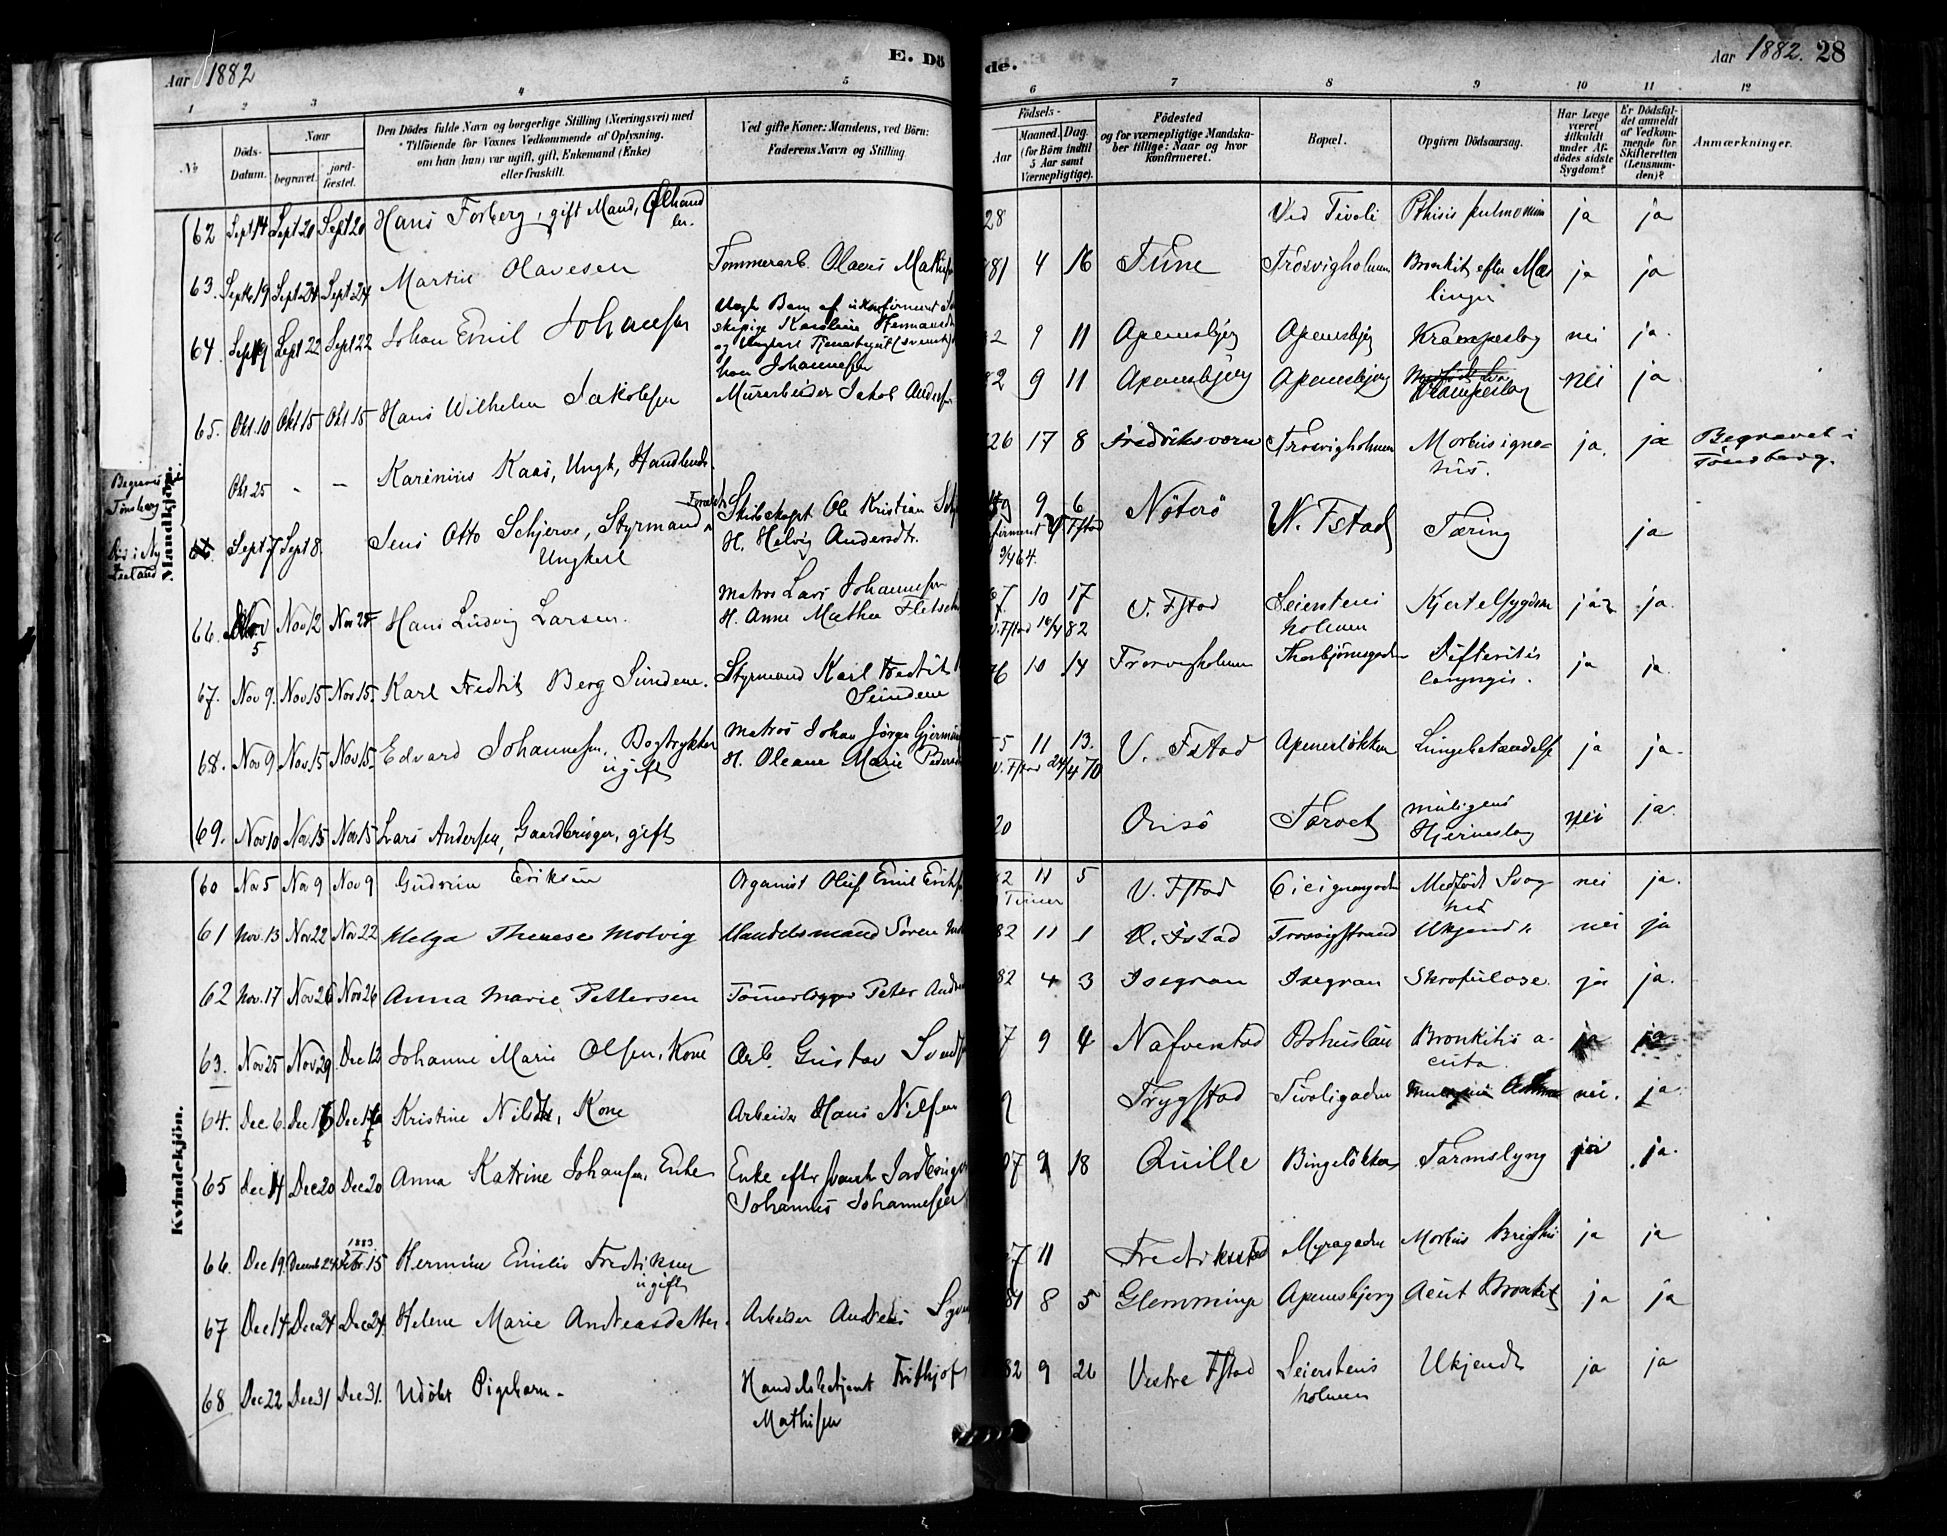 Aar 1882
E. Dö
de.
Aar 1882. 28
1 2 3 4 5 6 7 8 9 10 11 12
No
Döds-
Datum.
Naar
begravet.
jord-
fæstet.
Den Dödes fulde Navn og borgerlige Stilling (Næringsvei) med
Tilföiende for Voxnes Vedkommende af Oplysning,
om han (hun) var ugift, gift, Enkemand (Enke)
eller fraskilt.
Ved gifte Koner: Mandens, ved Börn:
Faderens Navn og Stilling.
Födsels-
Aar
Maaned. Dag.
(for Börn indtil
5 Aar samt
Værnepligtige).
Födested
og for værnepligtige Mandska-
ber tillige: Naar og hvor
konfirmeret.
Bopæl.
Opgiven Dödsaarsag.
Har Læge
været
tilkaldt
under Af-
dödes sidste
Sygdom?
Er Dödsfal-
det anmeldt
af Vedkom-
mende for
Skifteretten
(Lensman-
den)?
Anmærkninger.
Mandkjön.
62 Sept 14 Sept 20 Sept 20 Hans Forberg, gift Mand, Ølhand
ler.
28 Ved Tivoli Pthisis pulmonum ja ja
63. Sept 19 Sept 24 Sept 24 Martin Olavesen Tømmerarb. Olaves
81 4 16 Tune Trosvigholmen Bronkit efter Mæs
linger ja ja
64. Sept 19 Sept 22 Sept 22 Johan Emil Johansen Uægte Barn af ukonfirmeret
Karoline Hermansdt
og Ungkarl
Johannesen
2 9 11 Apenesbjerg Apenesbjerg Krampeslag nei ja.
65. Okt. 10 Okt 15 Okt 15 Hans Wilhelm Jakobsen Murarbeider Jakob Andersen
82 9 11 Apenesbjerg Apenesbjerg Krampeslag nei ja
Begraves i
Tønsberg
Okt 25 - - Karenius Kaas, Ungk, Handlende
26 17 8 Fredriksværn Trosvigholmen Morbus igno-
tus. ja. ja Begravet i
Tönsberg.
Sept 7 Sept 8. Jens Otto Schjerve, Styrmand
Ungkarl
Forældre
Skibskapt Ole Kristian
H. Helvig Andersdt.
9 6 Nøterö V. Fstad Tæring ja
66. Nov
5 Nov 12 Nov 25 Hans Ludvig Larsen. Matros Lars Johannesen
H. Anne Mathea
7 10 17 V. Fstad Seierstens
holmen Kjertelsygdom ja. ja.
V. Fstad 16/4 82
67. Nov 9. Nov 15 Nov 15. Karl Fredrik Berg Sundene. Styrmand Karl Fredrik
Sundene
76 10 14 Trosvigholmen Thorbjørnsgaden Difteritis
laryngis. ja ja.
68. Nov 9. Nov 15 Nov 15. Edvard Johannesen, Bogtrykker
ugift Matros Johan Jørgen
H. Oleane Marie
5 11 13. V. Fstad Apenesløkken Lungebetændelse ja ja.
V. Fstad 24/4 70
69. Nov 10 Nov 15 Nov 15 Lars Andersen, Gaardbruger, gift
20 Onsö Torvet muligens
Hjerneslag nei ja.
Kvindekjön.
60 Nov 5 Nov 9 Nov 9 Gudrun Eriksen Organist Oluf Emil
82 11 5 V. Fstad Cicignongaden Medfødt Svag
hed nei ja.
Timer
61 Nov. 13 Nov 22 Nov. 22 Helga Therese Molvig Handelsmand Sören
82 11 1 V. Fstad Trosvigstrand Ukjendt nei ja
62 Nov. 17 Nov 26 Nov 26 Anna Marie Pettersen Tömmerlægger Peter
82 4 3 Isegran Isegran Skrofulose. ja ja.
63. Nov 25 Nov 29 Dec 13 Johanne Marie Olsen, Kone Arb. Gustav
7 9 4 Nafverstad Bohuslän Bronkitis a-
cuta. ja ja
64. Dec 6. Kristine Nilsdtr, Kone Arbeider Hans Nilsen
Trygstad Tivoligaden nei. ja.
65 Dec 14 Dec 20 Dec 20 Anna Katrine Johansen, Enke Enke efter svensk
Johannes Johannesen
7 9 18 Quille Bingeløkken Tarmslyng ja.
66. Dec 19. Decemb 24. 1883
Febr. 15 Hermine Emilie Fredriksen
ugift
7 11 Fredrikstad Myragaden Morbus Brigthii ja ja
67 Dec 14 Dec 24 Dec 24. Helene Marie Andreasdatter. Arbeider Andreas
81 8 5 Glemminge Apenesbjerg Acut Bronkit ja ja
68 Dec 22 Dec 31 Dec 31. Udöbt Pigebarn. Handelsbetjent Frithjof
Mathisen
82 9 26 Vestre Fstad Seierstens
holmen Ukjendt ja ja